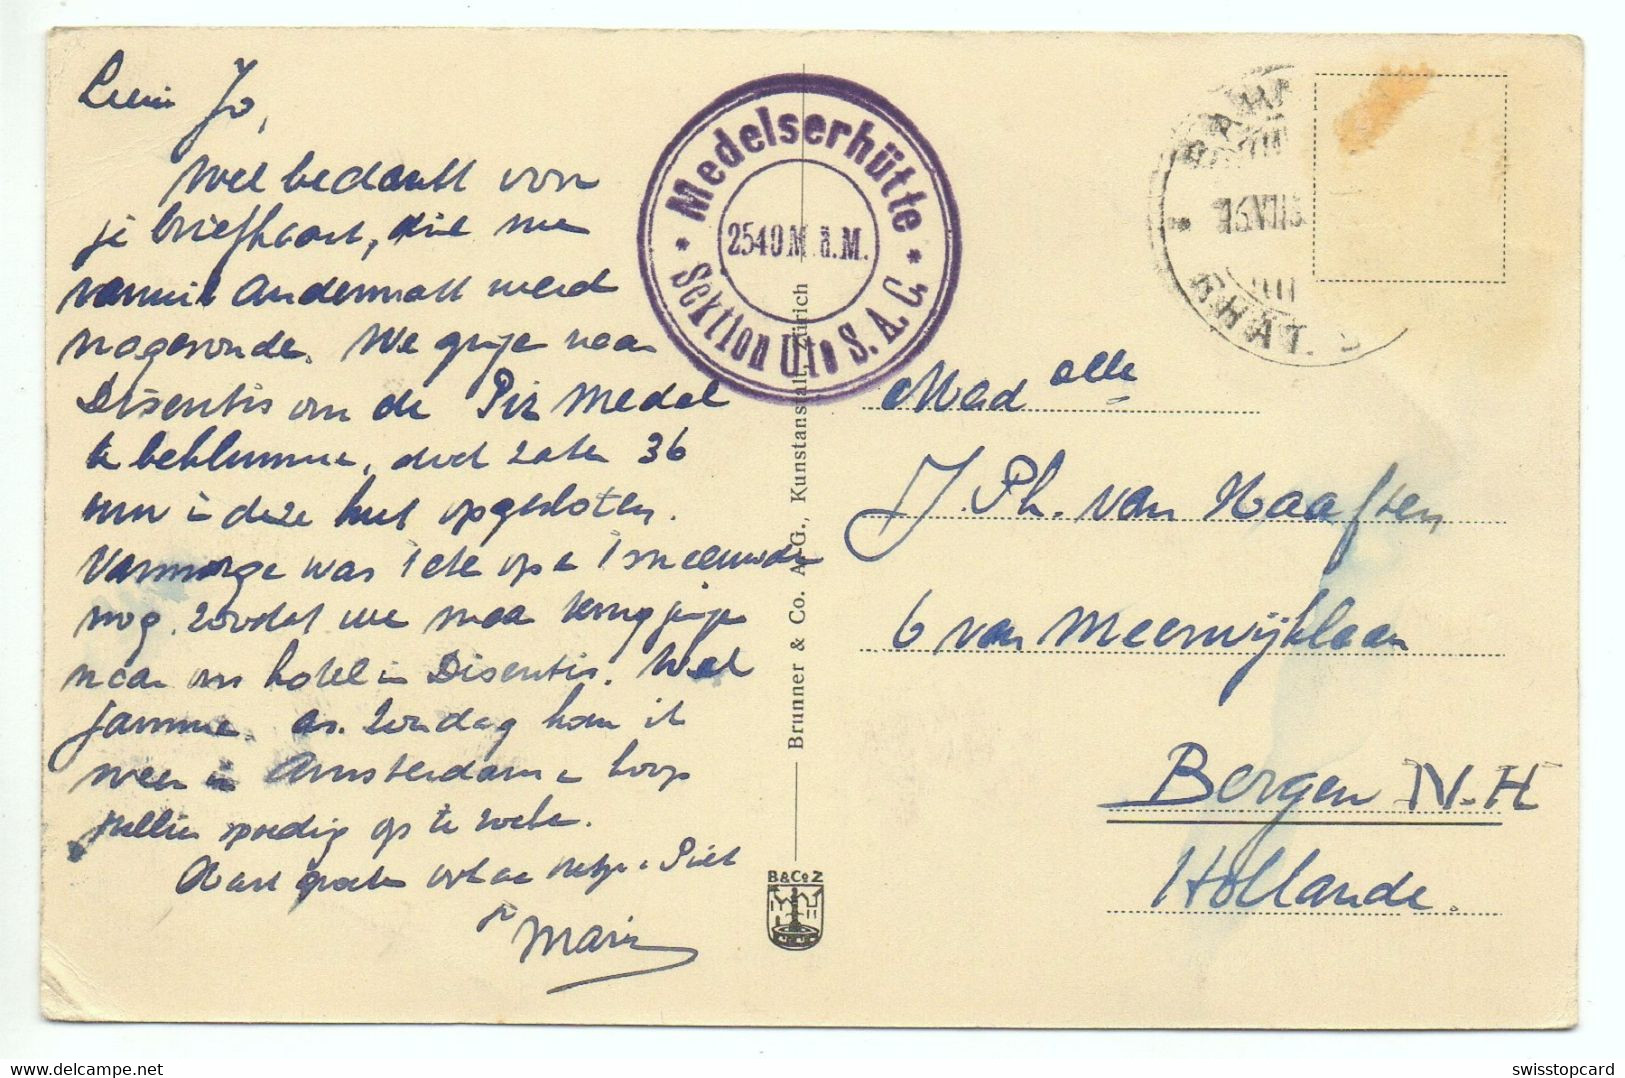 Jo,
Wel bedankt voor
je briefkaart, die me
vanuit Andermatt werd
nagezonde. We ginge naar
Disentis om de Piz Medel
te beklimme, doch zate 36
uur in deze hut opgesloten.
Vanmorge was 't ete op en 't sneeuwde
nog, zoodat we maar terug ginge
naar ons hotel in Disentis. Wel
jamme. as. Zondag kom ik
weer in Amsterdam en hoop
jullie spoedig op te zoeke.
Hart groete ook aan Piet
Medelserhütte
2540 M. ü. M.
Sektion Uto S. A. C.
Brunner & Co. A.-G., Kunstanstalt, Zürich
B & Co Z
Mad elle
J. Ph. van Haaften
6 van Meerwijklaan
Bergen N.-H
Hollande.
swisstopcard